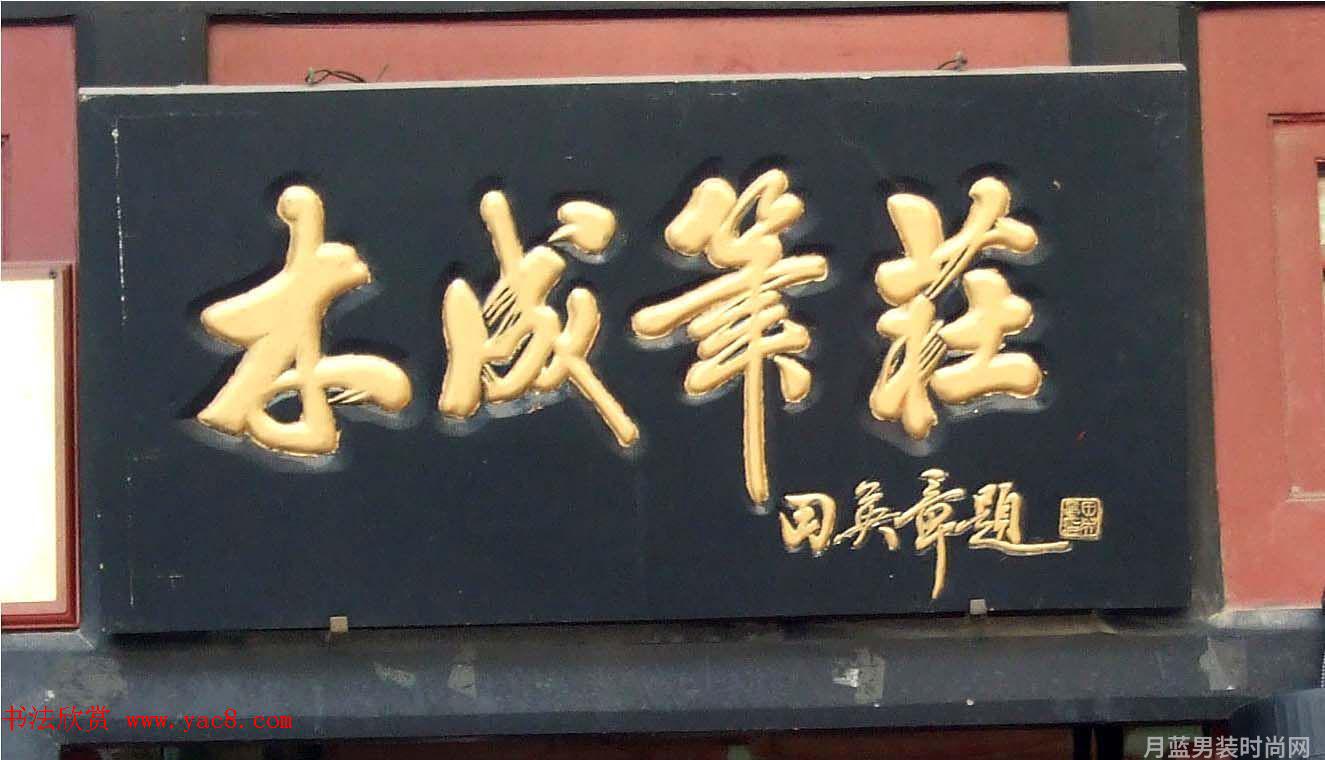 木成笔莊
田英章題
书法欣赏 www.yac8.com
月蓝男装时尚网